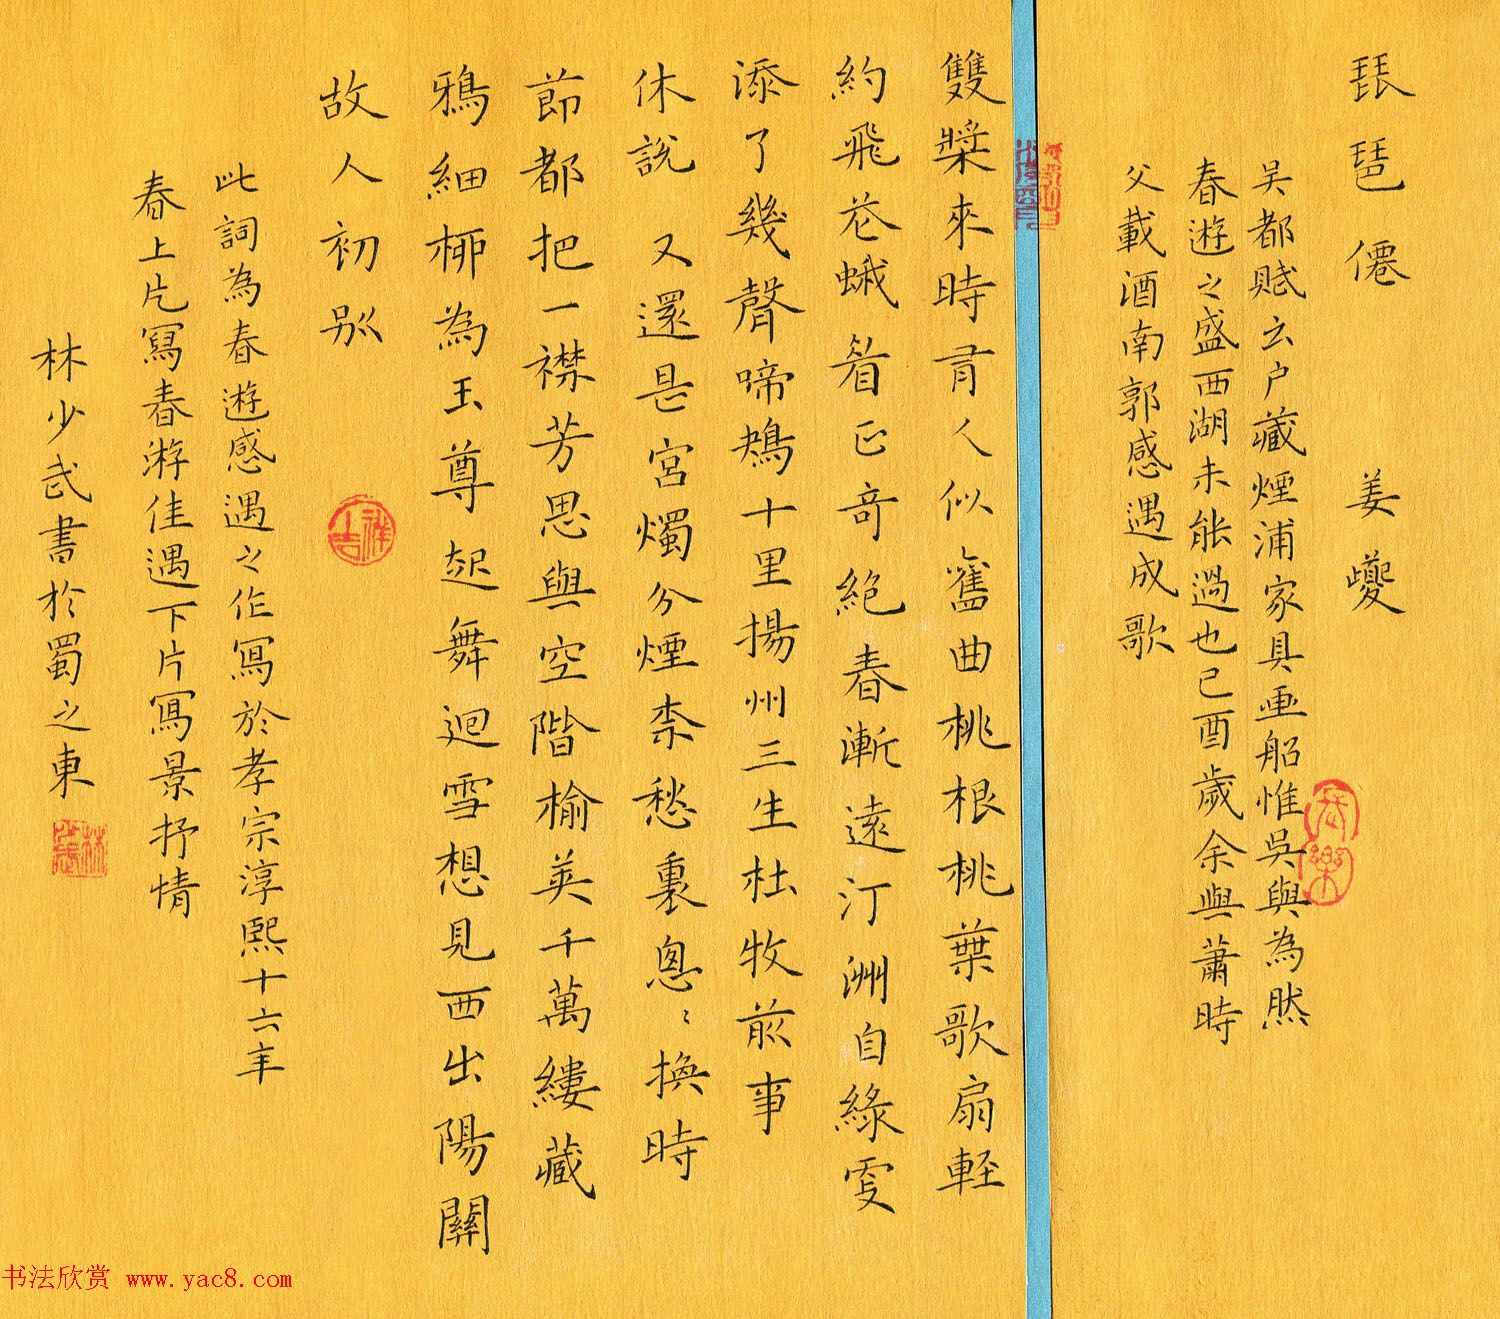 琵琶僊　姜夔
吴都賦云户藏煙浦家具畫船惟吳興為然
春遊之盛西湖未能過也己酉歲余與蕭時
父載酒南郭感遇成歌
雙槳來時有人似舊曲桃根桃葉歌扇輕
約飛花蛾眉正奇絕春漸遠汀洲自綠更
添了幾聲啼鴂十里揚州三生杜牧前事
休說　又還是宮燭分煙柰愁裏悤〻換時
節都把一襟芳思與空階榆莢千萬縷藏
鴉細桺為玉尊起舞迴雪想見西出陽關
故人初别
此詞為春遊感遇之作寫於孝宗淳熙十六年
春上片寫春游佳遇下片寫景抒情
林少武書於蜀之東
吉祥
书法欣赏 www.yac8.com